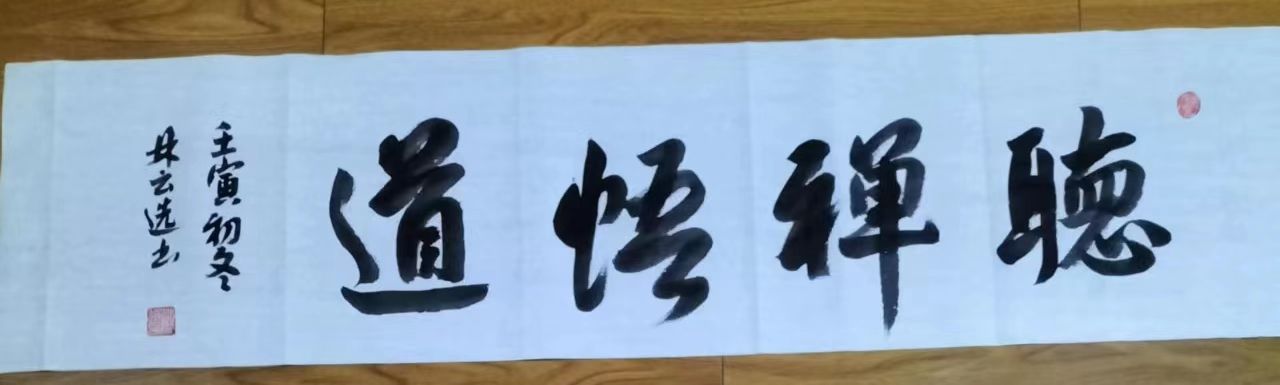 聽禪悟道
壬寅初冬
林云选书